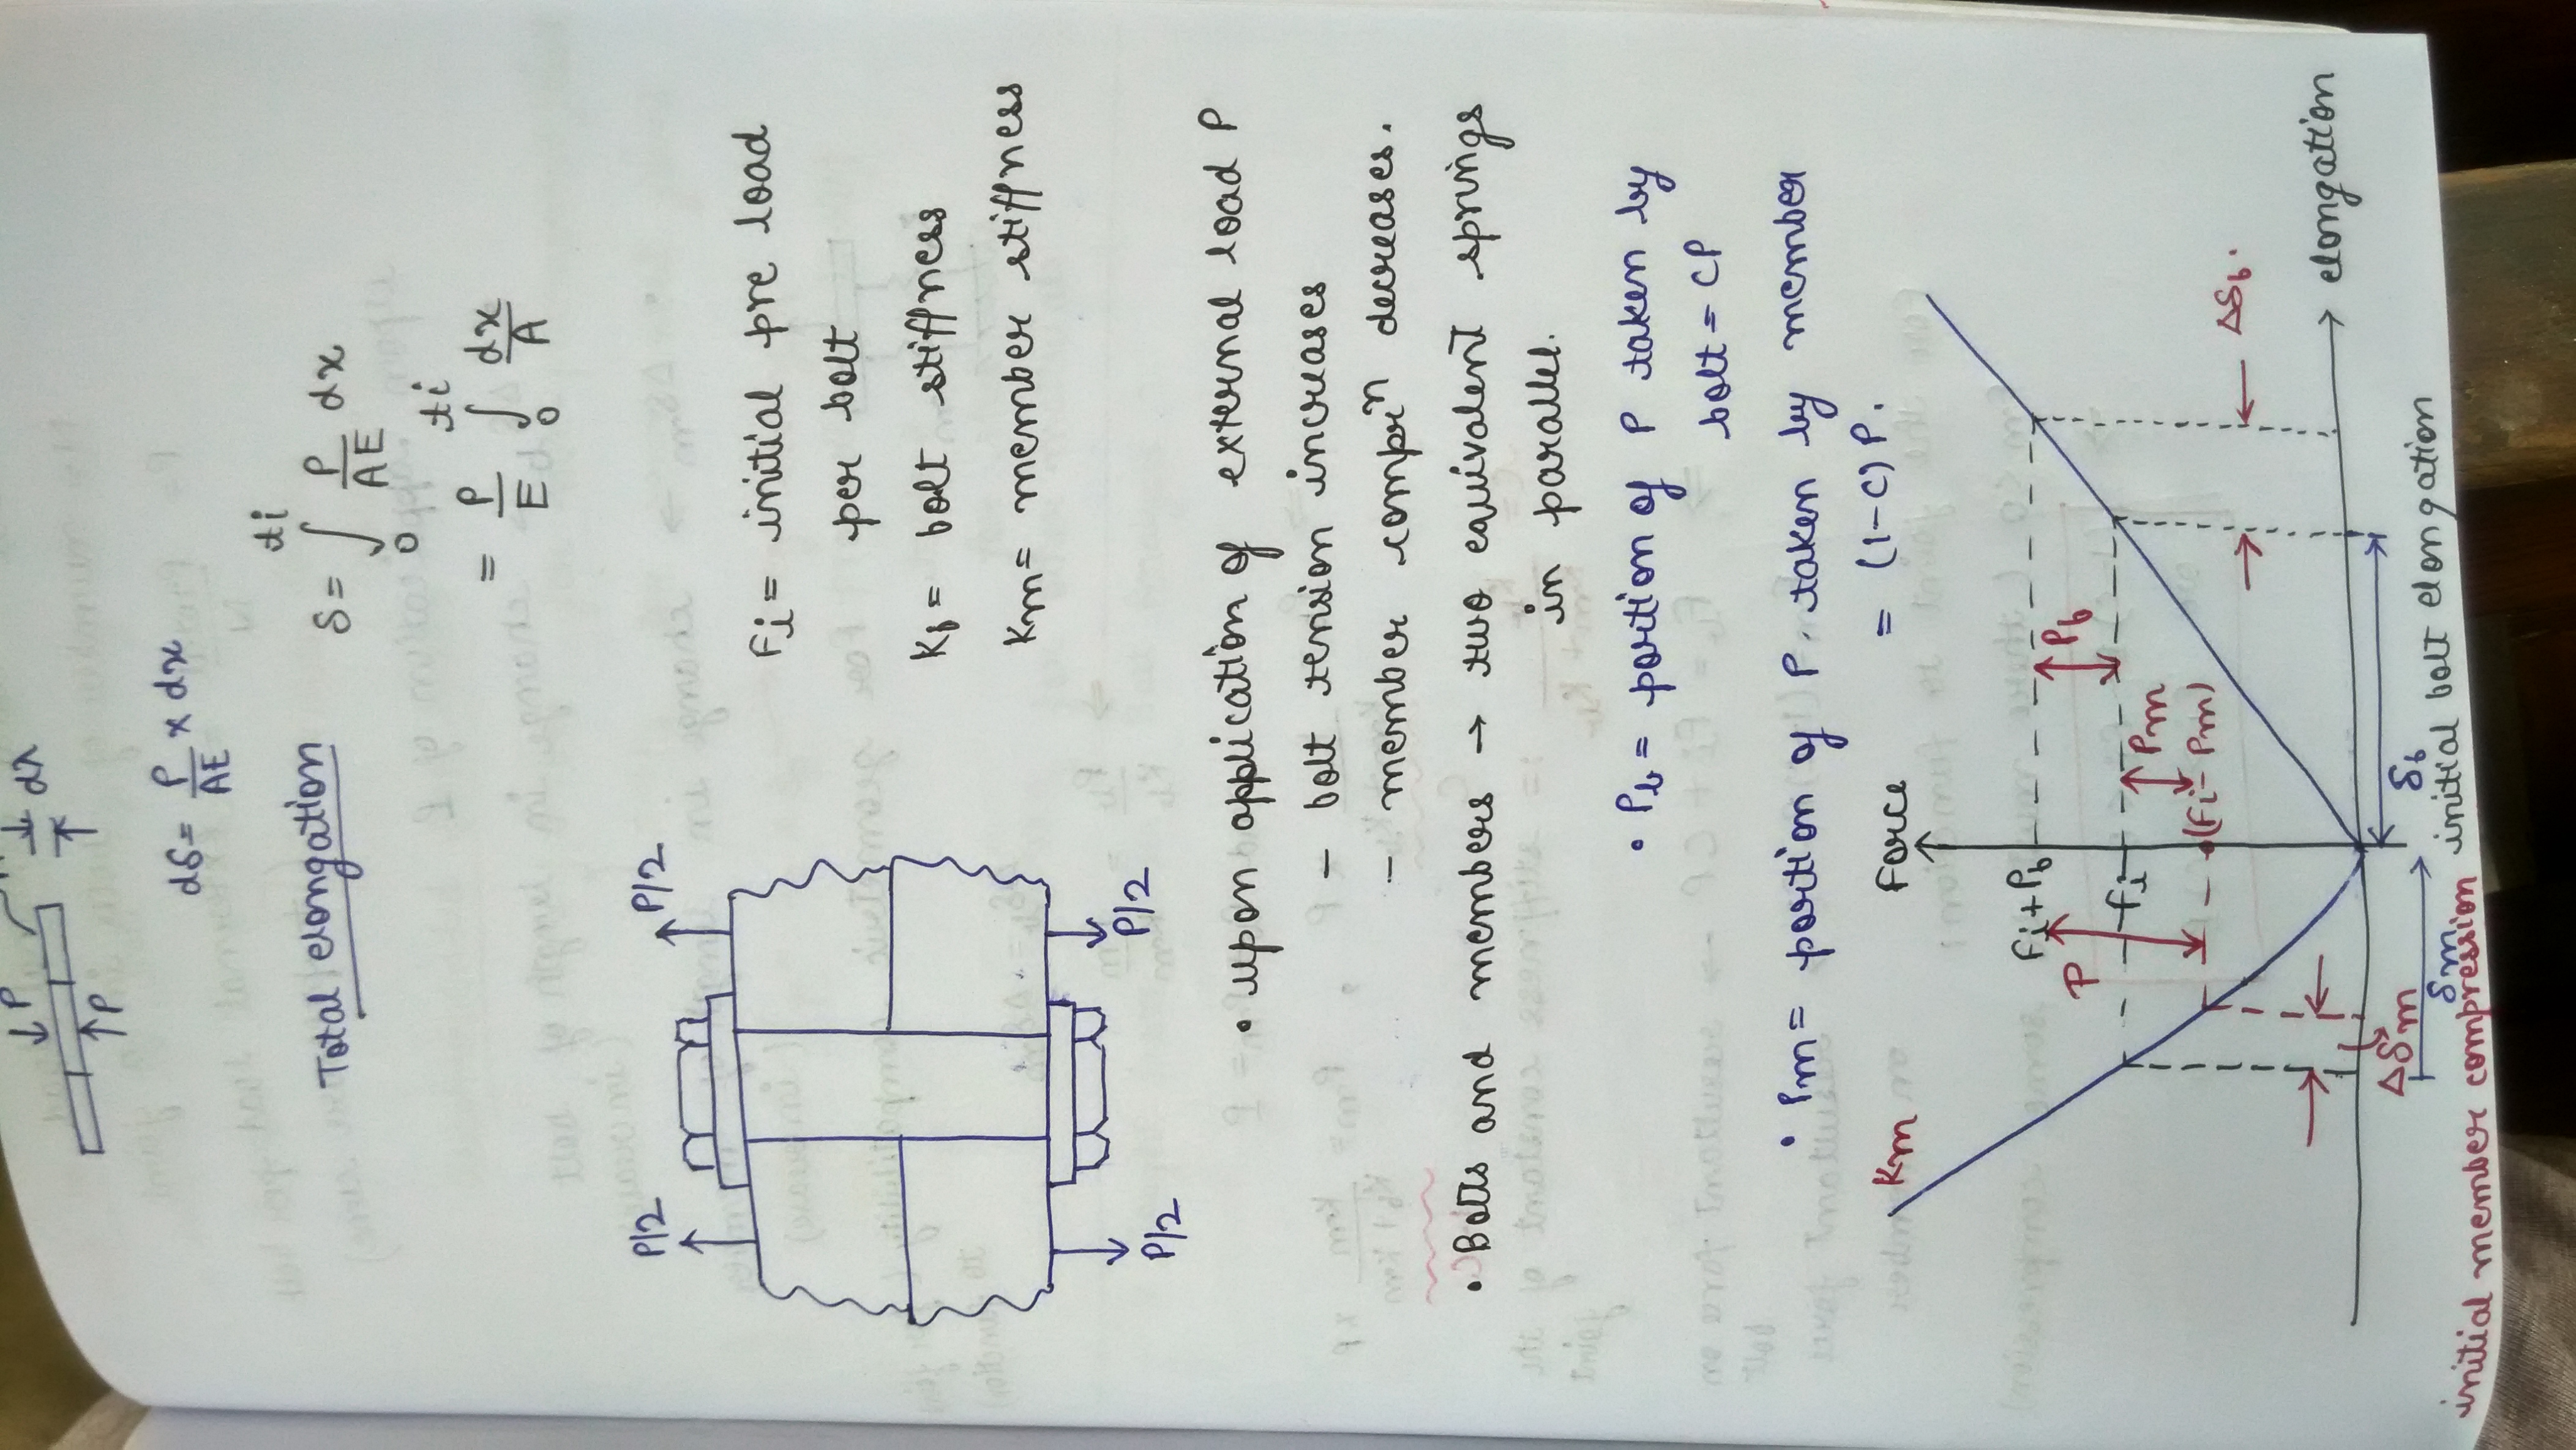 P
dx
P
dδ = P/AE × dx
Total elongation δ = ∫₀^ti P/AE dx
= P/E ∫₀^ti dx/A
P/2 P/2
Fi = initial pre load
per bolt
Kb = bolt stiffness
Km = member stiffness
P/2 P/2
• upon application of external load P
- bolt tension increases
- member comprⁿ decreases.
• Bolts and members → two equivalent springs
in parallel.
• Pb = portion of P taken by
bolt = CP
• Pm = portion of P. taken by member
= (1-C) P.
Km Force
Fi+Pb
P Pb
Fi Pm
(Fi - Pm)
Δδb.
elongation
Δδm
δm δb
initial member compression initial bolt elongation